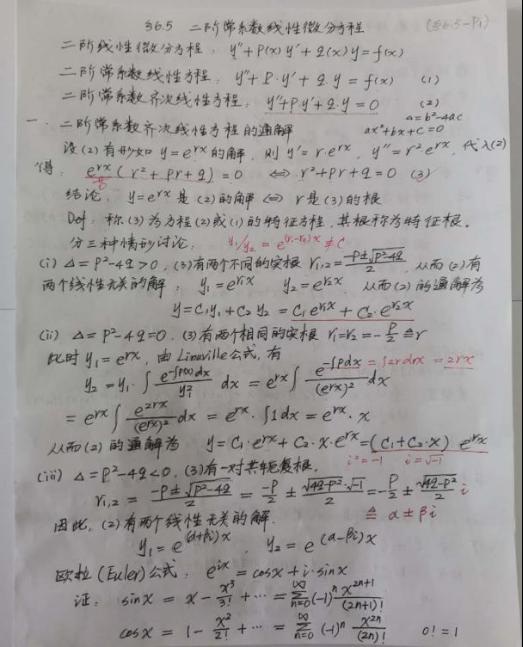 §6.5 二阶常系数线性微分方程 (§6.5-P1)
二阶线性微分方程: y''+P(x)y'+q(x)y=f(x)
二阶常系数线性方程: y''+P·y'+q·y=f(x) (1)
二阶常系数齐次线性方程: y''+P·y'+q·y=0 (2)
Δ=b²-4ac
一、二阶常系数齐次线性方程的通解 ax²+bx+c=0
设(2)有形如 y=e^{rx} 的解, 则 y'=r·e^{rx}, y''=r²e^{rx}, 代入(2)
得: e^{rx}(r²+pr+q)=0 ⇔ r²+pr+q=0 (3)
结论: y=e^{rx} 是(2)的解 ⇔ r是(3)的根
Def: 称(3)为方程(2)或(1)的特征方程, 其根称为特征根.
分三种情形讨论: y₁/y₂=e^{(r₁-r₂)x}≠C
(i) Δ=P²-4q>0, (3)有两个不同的实根 r₁,₂=\frac{-P±√(P²-4q)}{2}, 从而(2)有
两个线性无关的解: y₁=e^{r₁x} y₂=e^{r₂x}. 从而(2)的通解为
y=C₁y₁+C₂y₂=C₁e^{r₁x}+C₂·e^{r₂x}
(ii) Δ=P²-4q=0, (3)有两个相同的实根 r₁=r₂=-\frac{P}{2}≜r
此时 y₁=e^{rx}, 由Liouville公式, 有
y₂=y₁·∫\frac{e^{-∫p(x)dx}}{y₁²}dx=e^{rx}∫\frac{e^{-∫Pdx}}{(e^{rx})²}dx =∫2rdx=2rx
=e^{rx}∫\frac{e^{2rx}}{(e^{rx})²}dx=e^{rx}·∫1dx=e^{rx}·x
从而(2)的通解为 y=C₁·e^{rx}+C₂·x·e^{rx}=(C₁+C₂·x)e^{rx}
i²=-1 i=√-1
(iii) Δ=P²-4q<0, (3)有一对共轭复根.
r₁,₂=\frac{-P±√(P²-4q)}{2}=\frac{-P}{2}±\frac{√(4q-P²)·√-1}{2}=-\frac{P}{2}±\frac{√(4q-P²)}{2}i
≜α±βi
因此, (2)有两个线性无关的解.
y₁=e^{(α+βi)x}, y₂=e^{(α-βi)x}
欧拉(Euler)公式: e^{ix}=cosx+i·sinx
证: sinx=x-\frac{x³}{3!}+…=∑_{n=0}^{∞}(-1)ⁿ\frac{x^{2n+1}}{(2n+1)!}
cosx=1-\frac{x²}{2!}+…=∑_{n=0}^{∞}(-1)ⁿ\frac{x^{2n}}{(2n)!} 0!=1